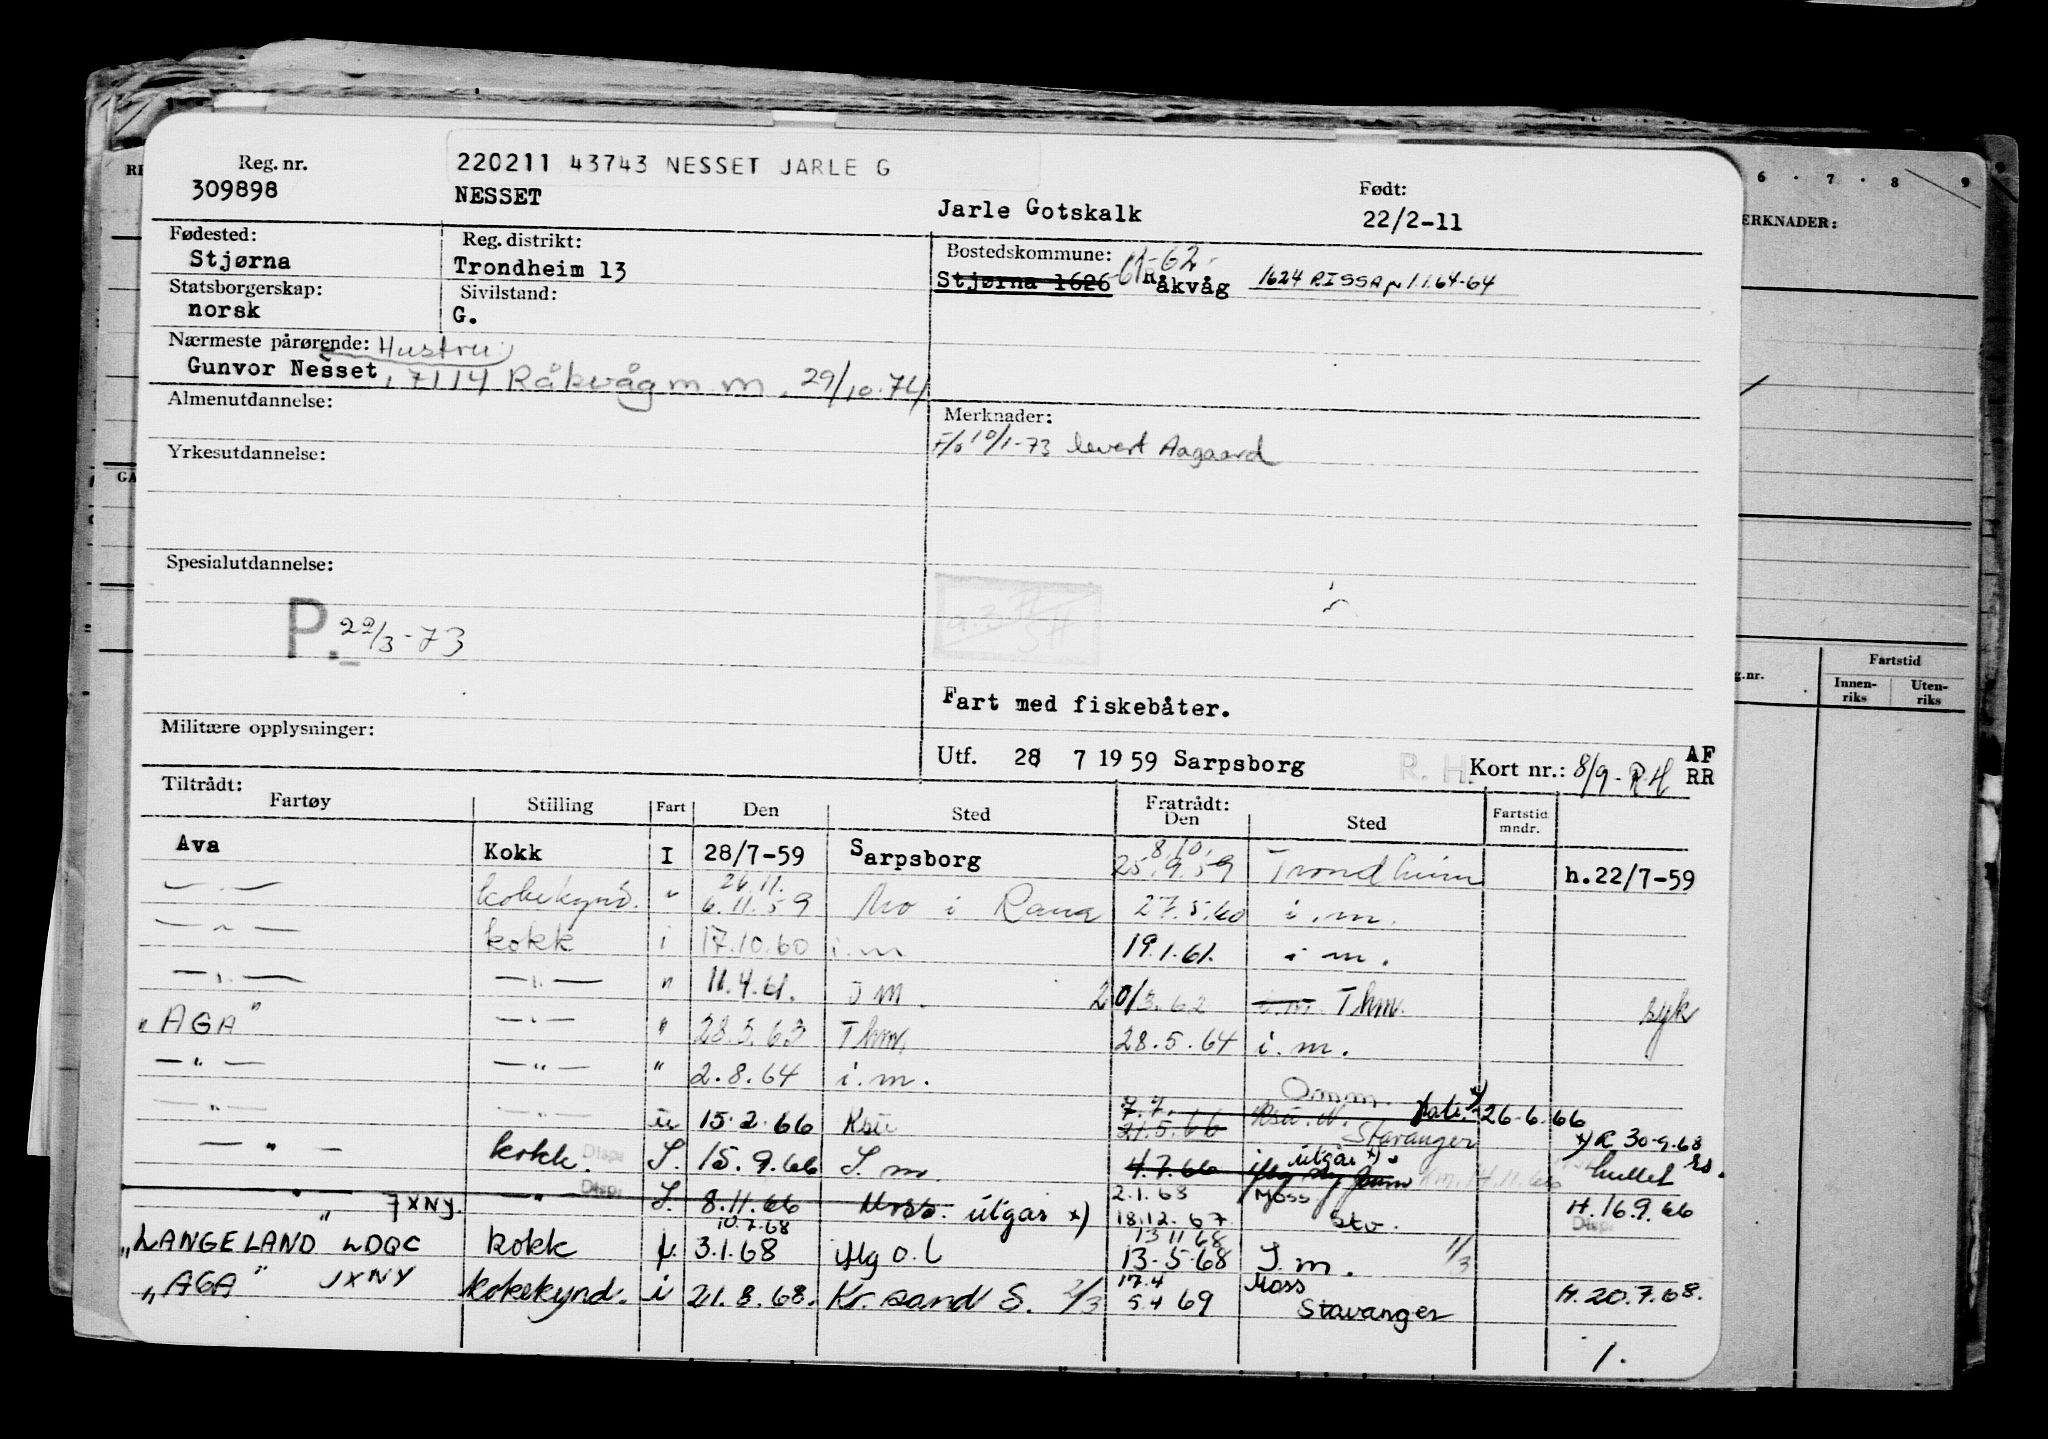 Reg. nr. 220211 43743 NESSET JARLE G
309898 NESSET Jarle Gotskalk Født: 22/2-11
Fødested: Stjørna
Reg. distrikt: Trondheim 13
Bostedskommune: 61-62
Stjørna 1626 Råkvåg 1624 RISSA 1.1.64-64
Statsborgerskap: norsk
Sivilstand: G.
Nærmeste pårørende: Hustru
Gunvor Nesset, 7114 Råkvåg m.m. 29/10-74
Almenutdannelse:
Merknader:
10/1-73 levert Aagaard
Yrkesutdannelse:
Spesialutdannelse:
P. 22/3-73
Fart med fiskebåter.
Militære opplysninger:
Utf. 28 7 1959 Sarpsborg R. H. Kort nr.: 8/9-RH AF RR
Tiltrådt: Fartøy Stilling Fart Den Sted Fratrådt: Den Sted Fartstid mndr.
Ava Kokk I 28/7-59 Sarpsborg 8.10. 25.9.59 Trondheim h.22/7-59
— " — " 26.11. 6.11.59 Mo i Rana 27.5.60 i.m.
— " — kokk i 17.10.60 i.m 19.1.61. i m.
— " — — " — " 11.4.61. I m. 20/3.62 i.m. Thm. syk
"AGA" — " — " 28.5.63 Thm. 28.5.64 i.m.
— " — — " — " 2.8.64 i.m.
— " — — " — u 15.2.66 Ksu 7.7. 21.5.66 Stavanger 26-6.66
— " — kokk. Disp. I. 15.9.66 I. m. 4.7.66 utgår x) x) R 30-9.68 hullet
— " — JXNY. — " — Disp. I. 8.11.66 Moss. utgår x) 2.1.68 18.12.67 Moss Stv. H. 16.9.66 Disp.
"LANGELAND" LDQC kokk 10.7.68 3.1.68 13 11 68 13-5-68 I m. 1/3
"AGA" JXNY kokekynd. i 21.8.68. Kr.sand S. 2/3 17.4 5.4 69 Moss Stavanger H. 20.7.68.
1.
6 . 7 . 8 9
ERKNADER:
g.nr.
Fartstid
Innen-riks Uten-riks